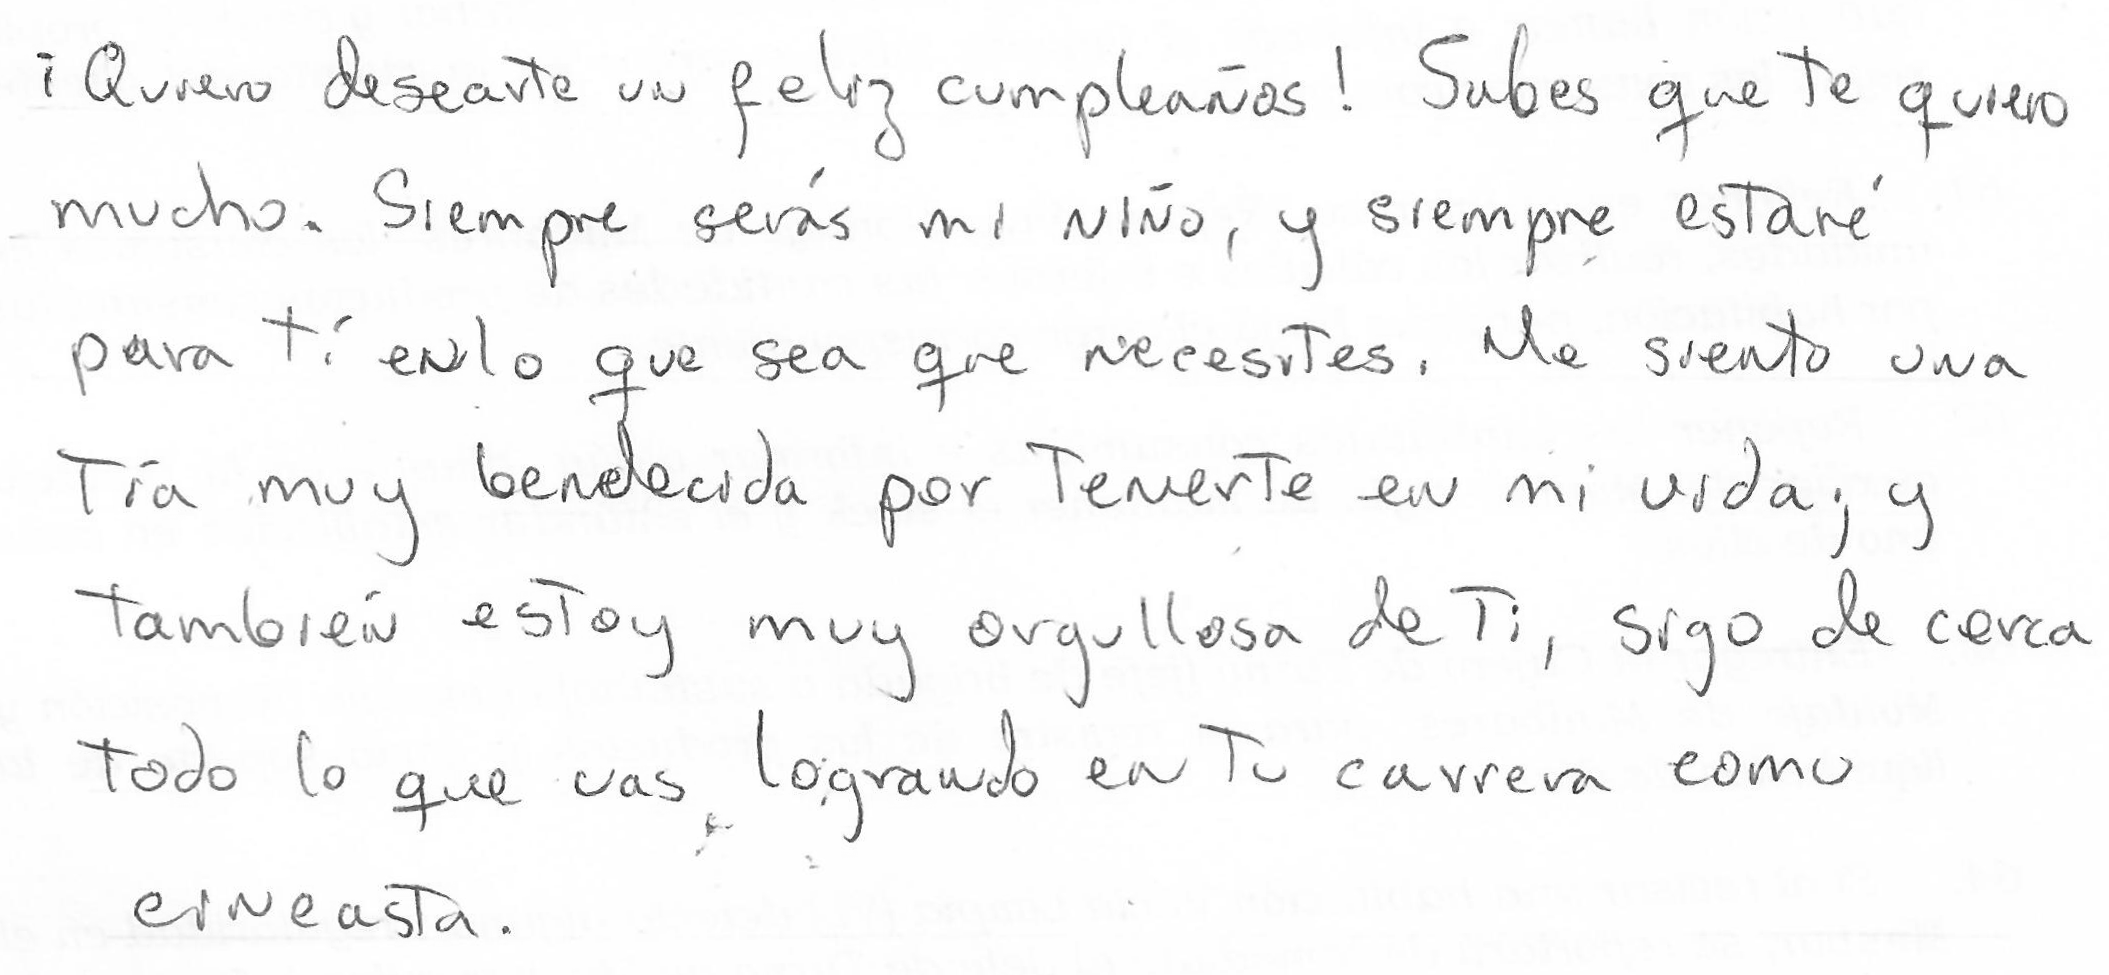 ¡Quiero desearte un feliz cumpleaños! Sabes que te quiero
mucho. Siempre serás mi niño, y siempre estaré
para tí en lo que sea que necesites. Me siento una
Tía muy bendecida por Tenerte en mi vida; y
también estoy muy orgullosa de Ti, sigo de cerca
todo lo que vas logrando en Tu carrera como
cineasta.